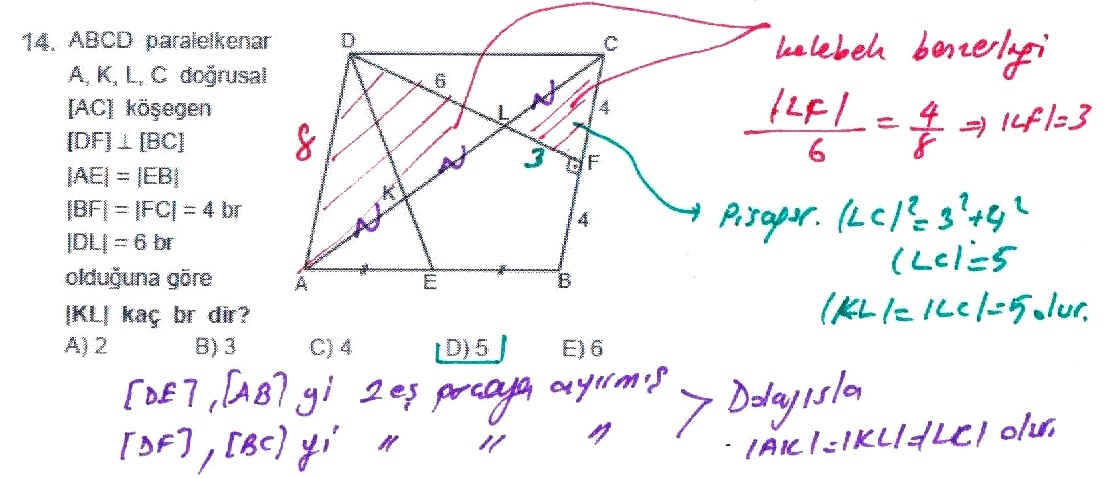 14. ABCD paralelkenar
A, K, L, C doğrusal
[AC] köşegen
[DF] ⊥ [BC]
|AE| = |EB|
|BF| = |FC| = 4 br
|DL| = 6 br
olduğuna göre
|KL| kaç br dir?
A) 2 B) 3 C) 4 D) 5 E) 6
D C
6
4
L
8
3 F
K
4
A E B
kelebek benzerliği
|LF| / 6 = 4 / 8 ⇒ |LF|=3
Pisagor. |LC|²=3²+4²
|LC|=5
|KL|=|LC|=5 olur.
[DE], [AB] yi 2 eş parçaya ayırmış
[DF], [BC] yi " " "
> Dolayısla
|AK|=|KL|=|LC| olur.